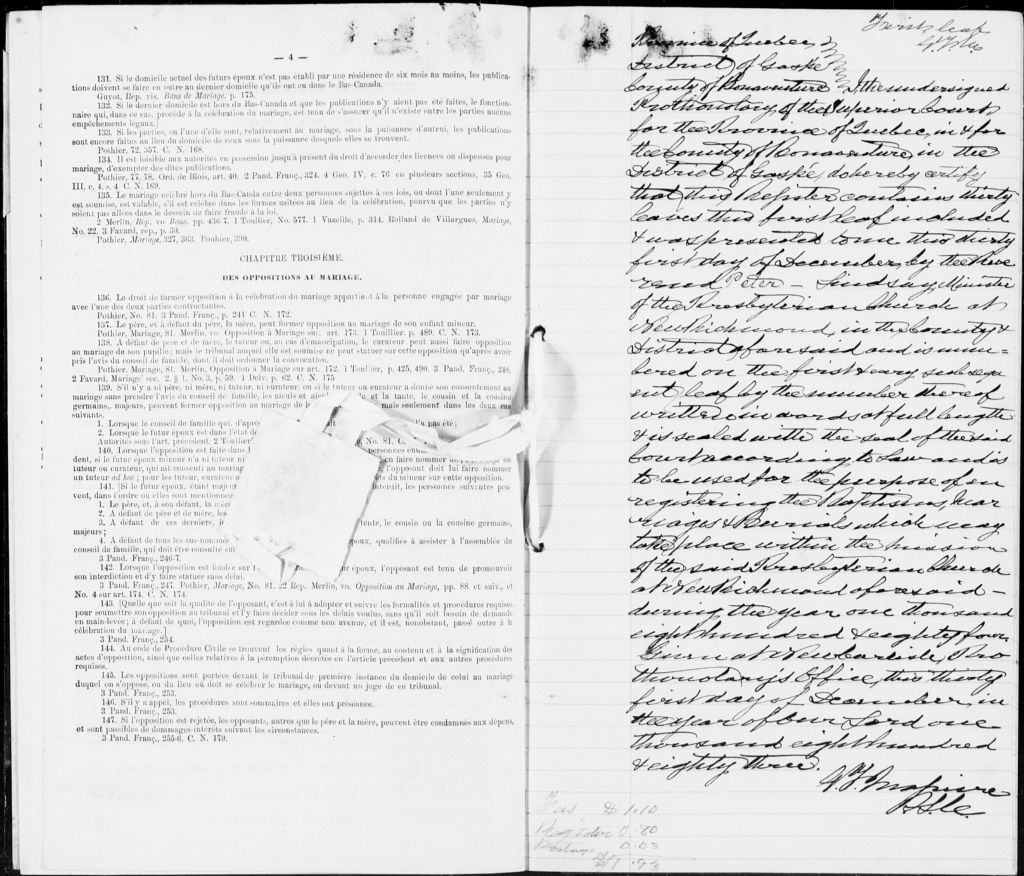 — 4 —
131. Si le domicile actuel des futurs époux n'est pas établi par une résidence de six mois au moins, les publica-
tions doivent se faire en outre au dernier domicile qu'ils ont eu dans le Bas-Canada.
Guyot, Rép. vis. Bans de Mariage, p. 175.
132. Si le dernier domicile est hors du Bas-Canada et que les publications n'y aient pas été faites, le fonction-
naire qui, dans ce cas, procède à la célébration du mariage, est tenu de s'assurer qu'il n'existe entre les parties aucuns
empêchements légaux.]
133. Si les parties, ou l'une d'elle sont, relativement au mariage, sous la puissance d'autrui, les publications
sont encore faites au lieu du domicile de ceux sous la puissance desquels elles se trouvent.
Pothier, 72, 357. C. N. 168.
134. Il est loisible aux autorités en possession jusqu'à présent du droit d'accorder des licences ou dispenses pour
mariage, d'exempter des dites publications.
Pothier, 77, 78. Ord. de Blois, art. 40. 2 Pand. Franç., 324. 4 Geo. IV, c. 76 en plusieurs sections, 35 Geo.
III, c. 4. s. 4 C. N. 169.
135. Le mariage célébré hors du Bas-Canda entre deux personnes sujettes à ses lois, ou dont l'une seulement y
est soumise, est valable, s'il est célébré dans les formes usitées au lieu de la célébration, pourvu que les parties n'y
soient pas allées dans le dessein de faire fraude à la loi.
2 Merlin, Rép. vo Bans. pp. 456-7. 1 Toullier, No. 577. 1 Vazeille, p. 314. Rolland de Villargues, Mariage,
No. 22. 3 Favard, rép., p. 30.
Pothier, Mariage, 327, 363. Bouhier, 390.
CHAPITRE TROISIÈME.
DES OPPOSITIONS AU MARIAGE.
136. Le droit de former opposition à la célébration du mariage appartient à la personne engagée par mariage
avec l'une des deux parties contractantes.
Pothier, No. 81. 3 Pand. Franç., p. 241 C. N. 172.
137. Le père, et à défaut du père, la mère, peut former opposition au mariage de son enfant mineur.
Pothier, Mariage, 81. Merlin, vo. Opposition à Mariage sur art. 173. 1 Toullier. p. 489. C. N. 173.
138. A défaut de père et de mère, le tuteur ou, au cas d'émancipation, le curateur peut aussi faire opposition
au mariage de son pupille; mais le tribunal auquel elle est soumise ne peut statuer sur cette opposition qu'après avoir
pris l'avis du conseil de famille, dont il doit ordonner la convocation.
Pothier, Mariage, 81. Merlin, Opposition à Mariage sur art. 172. 1 Toullier, p. 425, 490. 3 Pand. Franç., 248.
2 Favard, Mariage sec. 2. § 1. No. 3, p. 59. 1 Delv. p. 62. C. N. 175
139. S'il n'y a ni père, ni mère, ni tuteur, ni curateur, ou si le tuteur ou curateur a donné son consentement au
mariage sans prendre l'avis du conseil de famille, les aïeuls et aïeul et la tante, le cousin et la cousine
germains, majeurs, peuvent former opposition au mariage de l mais seulement dans les deux cas
suivants.
1. Lorsque le conseil de famille qui, d'aprè n'a pas été;
2. Lorsque le futur époux est dans l'état de
Autorités sous l'art. précédent. 2 Toullier No. 81. C.
140. Lorsque l'opposition est faite dans
dent, si le futur époux mineur n'a ni tuteur ni en faire nommer
tuteur ou curateur, qui ait consenti au mariag l'opposant doit lui faire nommer
un tuteur ad hoc; pour les tuteur, curateur o du mineur sur cette opposition.
141. [Si le futur époux, étant majeur interdit, les personnes suivantes peu-
vent, dans l'ordre où elles sont mentionnées
1. Le père, et, à son défaut, la mère
2. A défaut de père et de mère, les
3. A défaut de ces derniers, l tante, le cousin ou la cousine germains,
majeurs;
4. A défaut de tous les sus-nommés époux, qualifiés à assister à l'assemblée du
conseil de famille, qui doit être consulté su
3 Pand. Franç., 246-7.
142. Lorsque l'opposition est fondée sur l époux, l'opposant est tenu de promouvoir
son interdiction et d'y faire statuer sans délai.
3 Pand. Franç., 247. Pothier, Mariage, No. 81. 22 Rép. Merlin, vo. Opposition au Mariage, pp. 88 et suiv., et
No. 4 sur art. 174. C. N. 174.
143. [Quelle que soit la qualité de l'opposant, c'est à lui à adopter et suivre les formalités et procédures requises
pour soumettre son opposition au tribunal et l'y faire décider sous les délais voulus, sans qu'il soit besoin de demande
en main-levée; à défaut de quoi, l'opposition est regardée comme non avenue, et il est, nonobstant, passé outre à la
célébration du mariage.]
3 Pand. Franç., 254.
144. Au code de Procédure Civile se trouvent les règles quant à la forme, au contenu et à la signification des
actes d'opposition, ainsi que celles relatives à la péremption décrétée en l'article précédent et aux autres procédures
requises.
145. Les oppositions sont portées devant le tribunal de première instance du domicile de celui au mariage
duquel on s'oppose, ou du lieu où doit se célébrer le mariage, ou devant un juge de ce tribunal.
3 Pand. Franç., 253.
146. S'il y a appel, les procédures sont sommaires et elles ont préséance.
3 Pand. Franç., 253.
147. Si l'opposition est rejetée, les opposants, autres que le père et la mère, peuvent être condamnés aux dépens,
et sont passibles de dommages-intérêts suivant les circonstances.
3 Pand. Franç., 255-6. C. N. 179.
First leaf
Province of Quebec
District of Gaspé
County of Bonaventure I, the undersigned
Prothonotary of the Superior Court
for the Province of Quebec, in & for
the County of Bonaventure, in the
District of Gaspé, do hereby certify
that this Register contains thirty
leaves this first leaf included
& was presented to me this thirty
first day of December, by the Reve
rend Peter — Lindsay, Minister
of the Presbyterian Church at
New Richmond, in the County &
District aforesaid and is num-
bered on the first & every subsequ
ent leaf by the number thereof
written in words at full length
& is sealed with the seal of the said
Court according to Law and is
to be used for the purpose of en
registering the Baptisms, Mar
riages & Burials which may
take place within the mission
of the said Presbyterian Church
at New Richmond aforesaid —
during the year one thousand
eight hundred & eighty four
Given at New Carlisle, Pro
thonotary's Office, this thirty
first day of December, in
the year of Our Lord one
thousand eight hundred
& eighty three.
P.S.C.
Fees $ 1.10
Register 0.80
Postage 0.03
$1.93